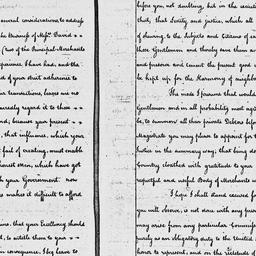 several considerations, to address
the Concerns of Messrs. David
(two of the Principal Merchants
experience I have had, and the
d of your strict adherence to
our transactions, leaves me no
already regard it to those
nd; because your present
, that influence, which your
t fail of creating, must enable
honest men, which have got
th your Government now
es makes it difficult to afford
ure, that your Excellency should
d, to entitle them to your
n consequence, I beg leave to
before you, not doubting, but in the
that, that Society and Justice, which all
of shewing to the Subjects and Citizens of
these Gentlemen and thereby save them
and preserve and cement the present good
be kept up, for the Harmony of neighbo
The mode I presume that would
Gentlemen and in all probability most
be, to summon all their private Debtors before
Magistrate you may please to appoint for t
Justice in the summary way; that being do
Country, clothed with gratitude to your
respectful and useful Body of Merchants
I hope I shall stand excused for
you will observe, is not done with any
may arise from any particular
purely as an obligatory duty to the
honor to represent, and on the rectitude of